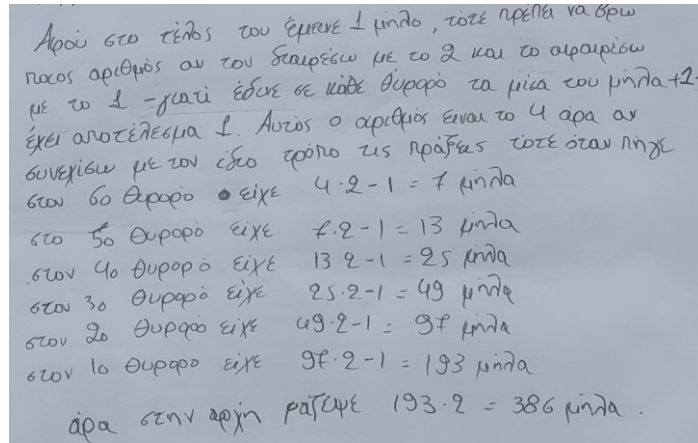 Αφού στο τέλος του έμεινε 1 μήλο, τότε πρέπει να βρω
ποιος αριθμός αν τον διαιρέσω με το 2 και το αφαιρέσω
με το 1 - γιατί έδινε σε κάθε θυρορό τα μισα του μήλα +1 -
έχει αποτέλεσμα 1. Αυτός ο αριθμός είναι το 4 άρα αν
συνεχίσω με τον ίδιο τρόπο τις πράξεις τότε όταν πήγε
στον 6ο θυρορό είχε 4·2-1 = 7 μήλα
στο 5ο θυρορό είχε 7·2-1 = 13 μήλα
στον 4ο θυρορό είχε 13·2-1 = 25 μήλα
στον 3ο θυρορό είχε 25·2-1 = 49 μήλα
στον 2ο θυρορό είχε 49·2-1 = 97 μήλα
στον 1ο θυρορο είχε 97·2-1 = 193 μήλα
άρα στην αρχή μάζεψε 193·2 = 386 μήλα.